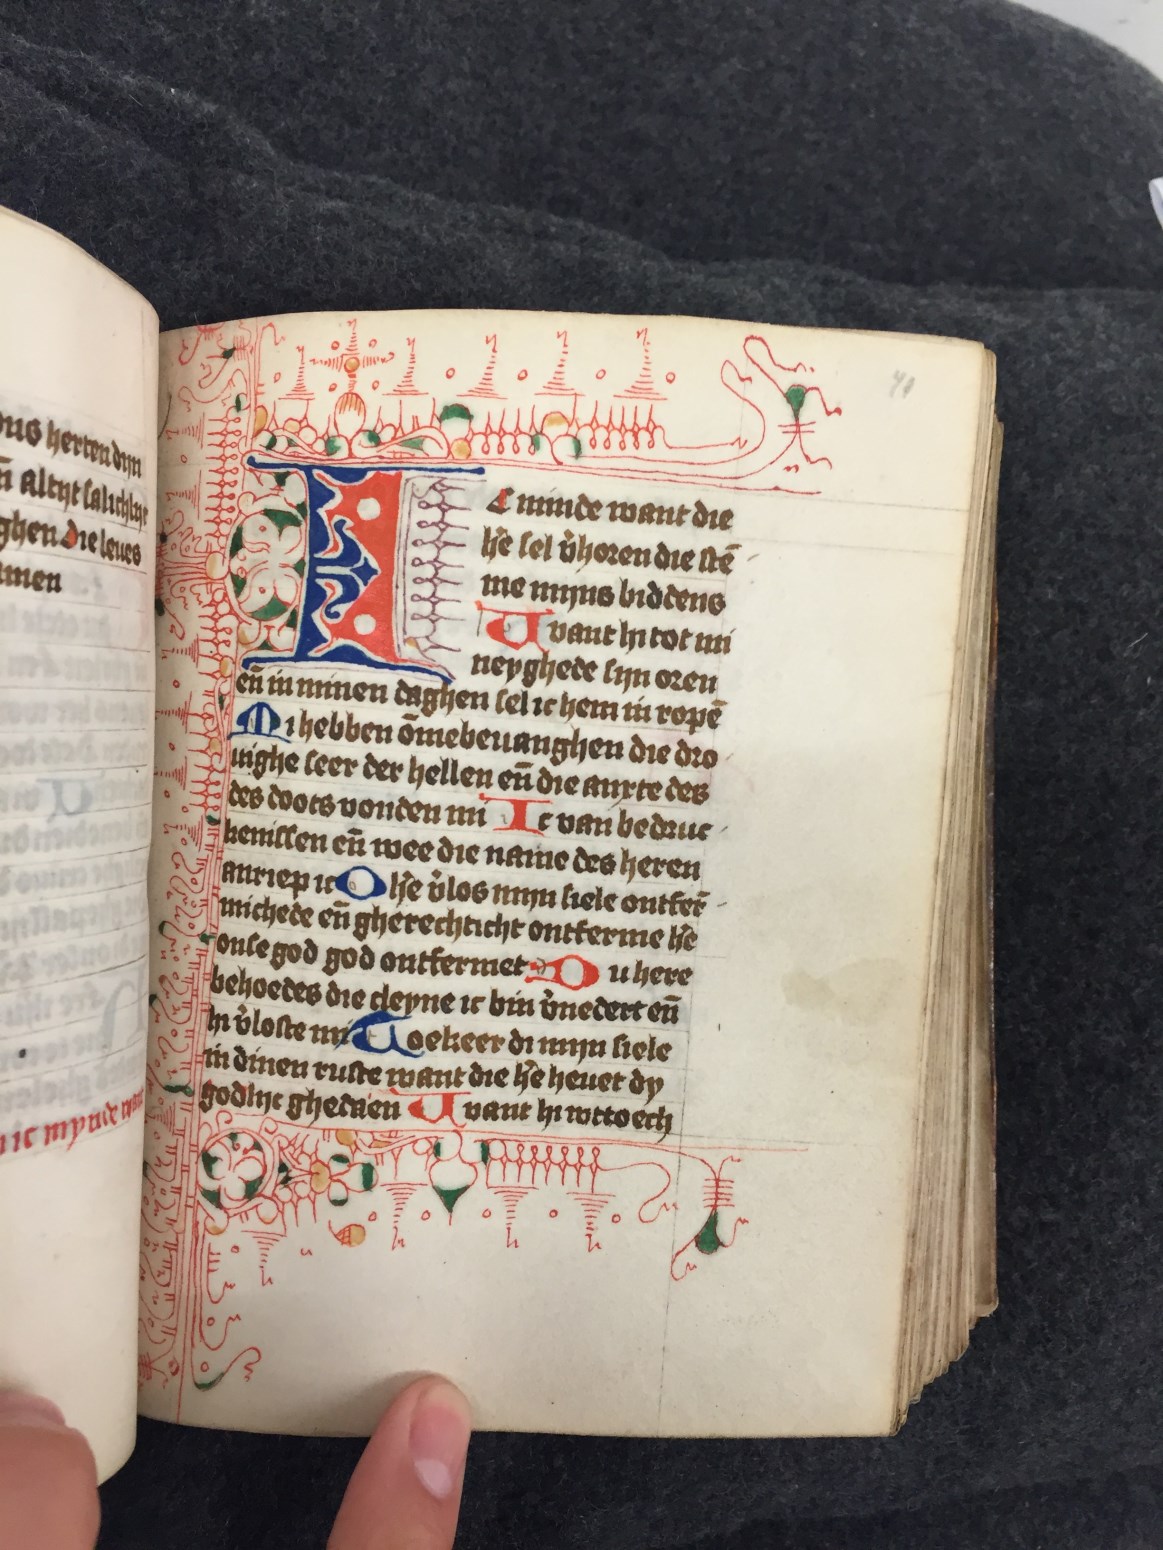 hertendijn
altijt salichlijc
ghen Die leues
amen
ic mynde want
40
Ic minde want die
hr̄e sel v̄horen die stē
me mijns biddens
Want hi tot mi
neyghede sijn oren
eñ in minen daghen sel ic hem in ropē
Mi hebben ōmebeuanghen die dro
uighe seer der hellen eñ die anxte des
des doots vonden mi Ic van bedruc
kenissen eñ wee die name des heren
anriep ic O hr̄e v̄los mijn siele ontfer̄
michede eñ gherechticht ontferme hr̄e
onse god god ontfermet Du here
behoedes die cleyne ic bin v̄nedert eñ
hi v̄loste mi Toekeer di mijn siele
in dinen ruste want die hr̄e heuet dy
godlijc ghedaen Want hi wttoech